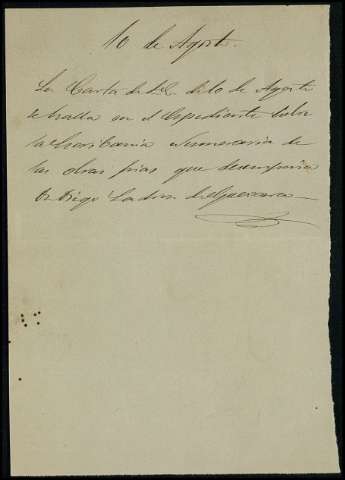 10 de Agosto.
La Carta de S.E. de 10 de Agosto
se halla en el Espediente sobre
la Escribania Numeraria de
las obras pias que desempeña
Dn Diego Ladron de Guevara